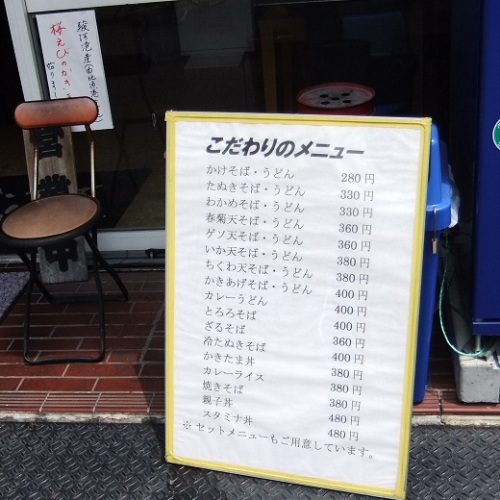 駿河湾産(由比港
桜えびのかき
営業中
こだわりのメニュー
かけそば・うどん 280円
たぬきそば・うどん 330円
わかめそば・うどん 330円
春菊天そば・うどん 360円
ゲソ天そば・うどん 360円
いか天そば・うどん 380円
ちくわ天そば・うどん 380円
かきあげそば・うどん 400円
カレーうどん 400円
とろろそば 400円
ざるそば 360円
冷たぬきそば 400円
かきたま丼 380円
カレーライス 380円
焼きそば 380円
親子丼 480円
スタミナ丼 480円
※セットメニューもご用意しています。